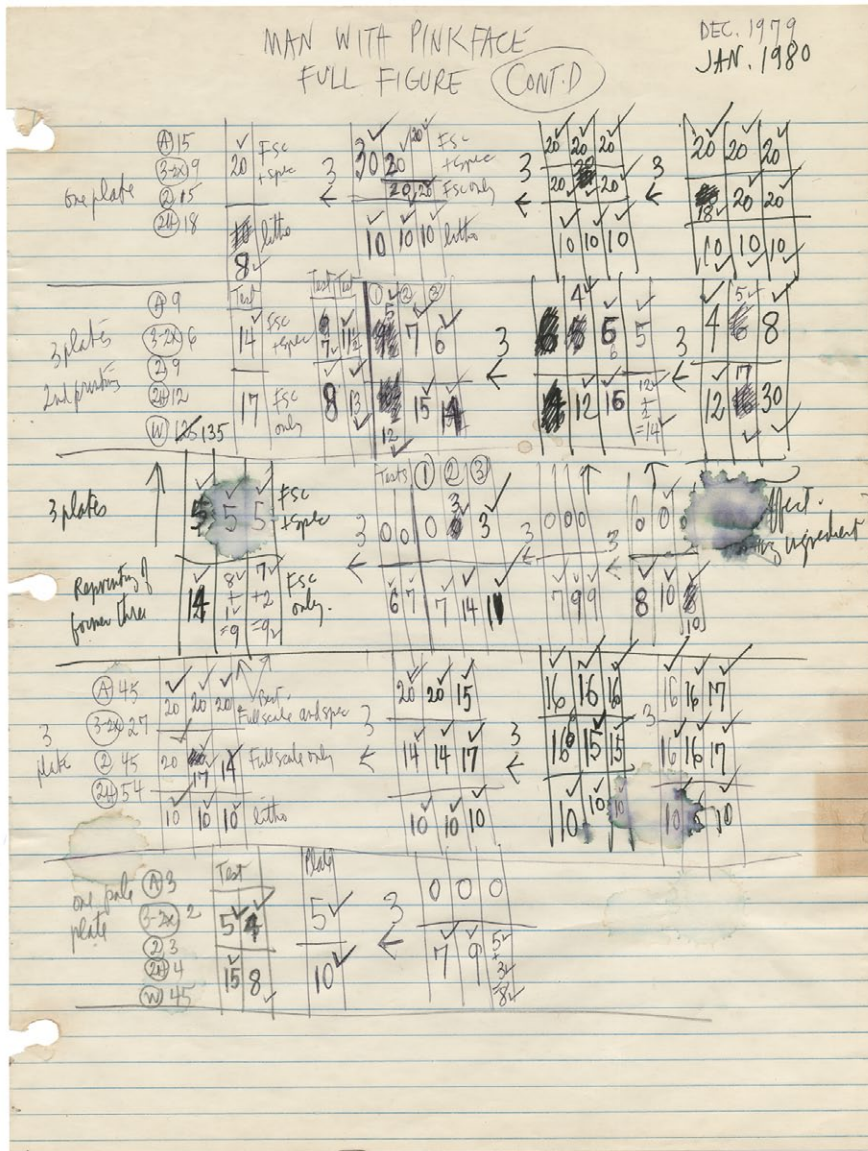 MAN WITH PINK FACE
FULL FIGURE CONT.D
DEC. 1979
JAN. 1980
one plate
A 15
3-2x 9
2 15
24 18
20 FSC + spec
8 litho
30 20 20 FSC + spec
20 20 FSC only
10 10 10 litho
3
20 20 20
20 20
10 10 10
3
20 20 20
18 20 20
10 10 10
3
3 plates
2nd printing
A 9
3-2x 6
2 9
24 12
W 135
Test
14 FSC + spec
17 FSC only
Test Test
8 13
1 2 3
5 7 6
12 15
3
4 6 5
12 16 12 + 2 = 14
3
4 5 8
12 17 30
3 plates
Reprinting of former three
5 5 5 FSC + spec
14 8 + 1 = 9 7 + 2 = 9 FSC only.
Tests 1 2 3
0 0 0 3 3
6 7 7 14 11
3
0 0 0
7 9 9
3
0 0
8 10 10
3
ingredient
3 plate
A 45
3-2x 27
2 45
24 54
20 20 20 Best.
Full scale and spec
20 17 14 Full scale only
10 10 10 litho
20 20 15
14 14 17
10 10 10
3
16 16 16
16 15 15
10 10 10
3
16 16 17
16 16 17
10 10
3
one pale plate
A 3
3-2x 2
2 3
24 4
W 45
Test
5 4
15 8
Plate
5
10
3
0 0 0
7 9 5 + 3 = 8